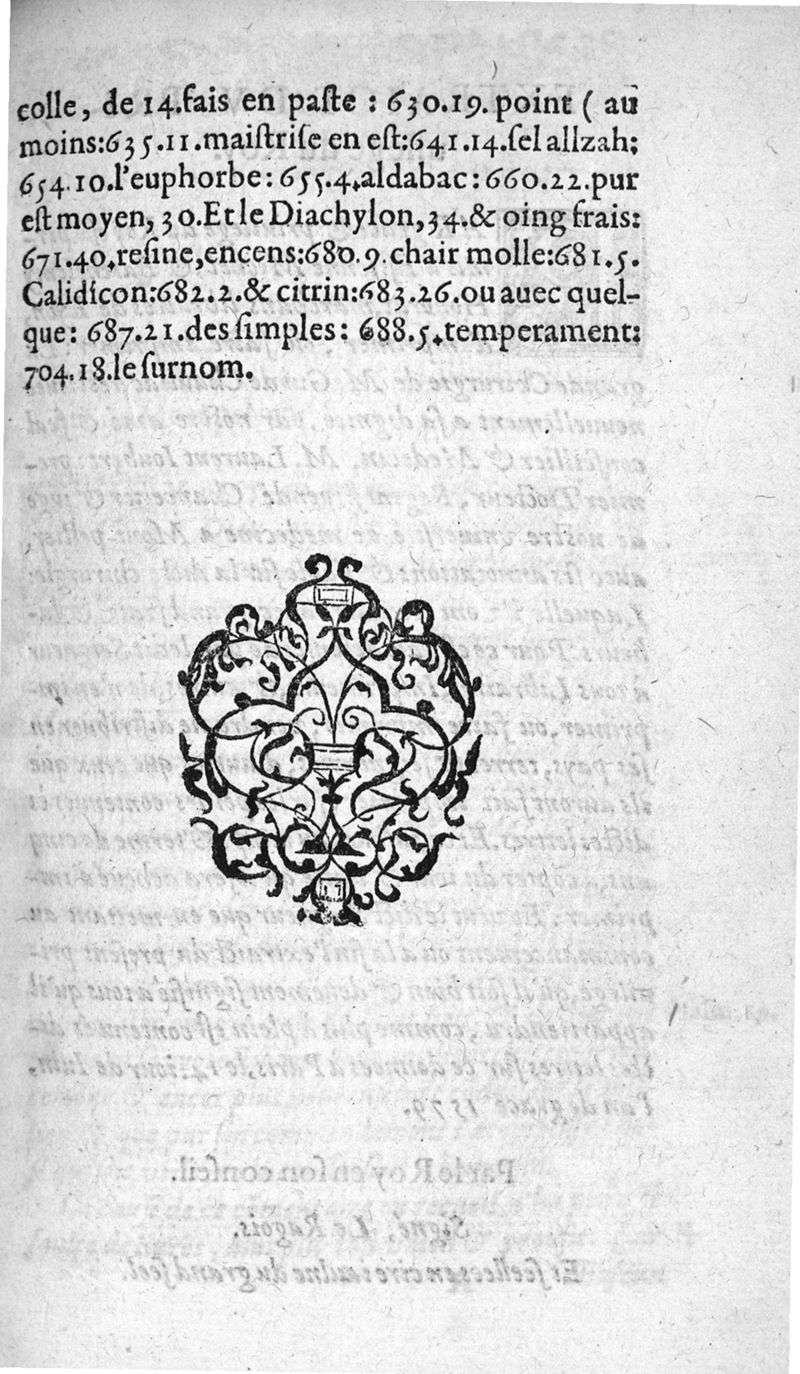 colle, de 14.fais en paſte : 630.19. point ( au
moins:635.11.maiſtriſe en eſt:641.14.ſel allzah;
654.10.l'euphorbe: 655.4.aldabac: 660.22.pur
eſt moyen, 30.Et le Diachylon,34.& oing frais:
671.40.reſine,encens:680.9.chair molle:681.5.
Calidicon:682.2.& citrin:683.26.ou auec quel-
que: 687.21.des ſimples: 688.5.temperament:
704.18.le ſurnom.